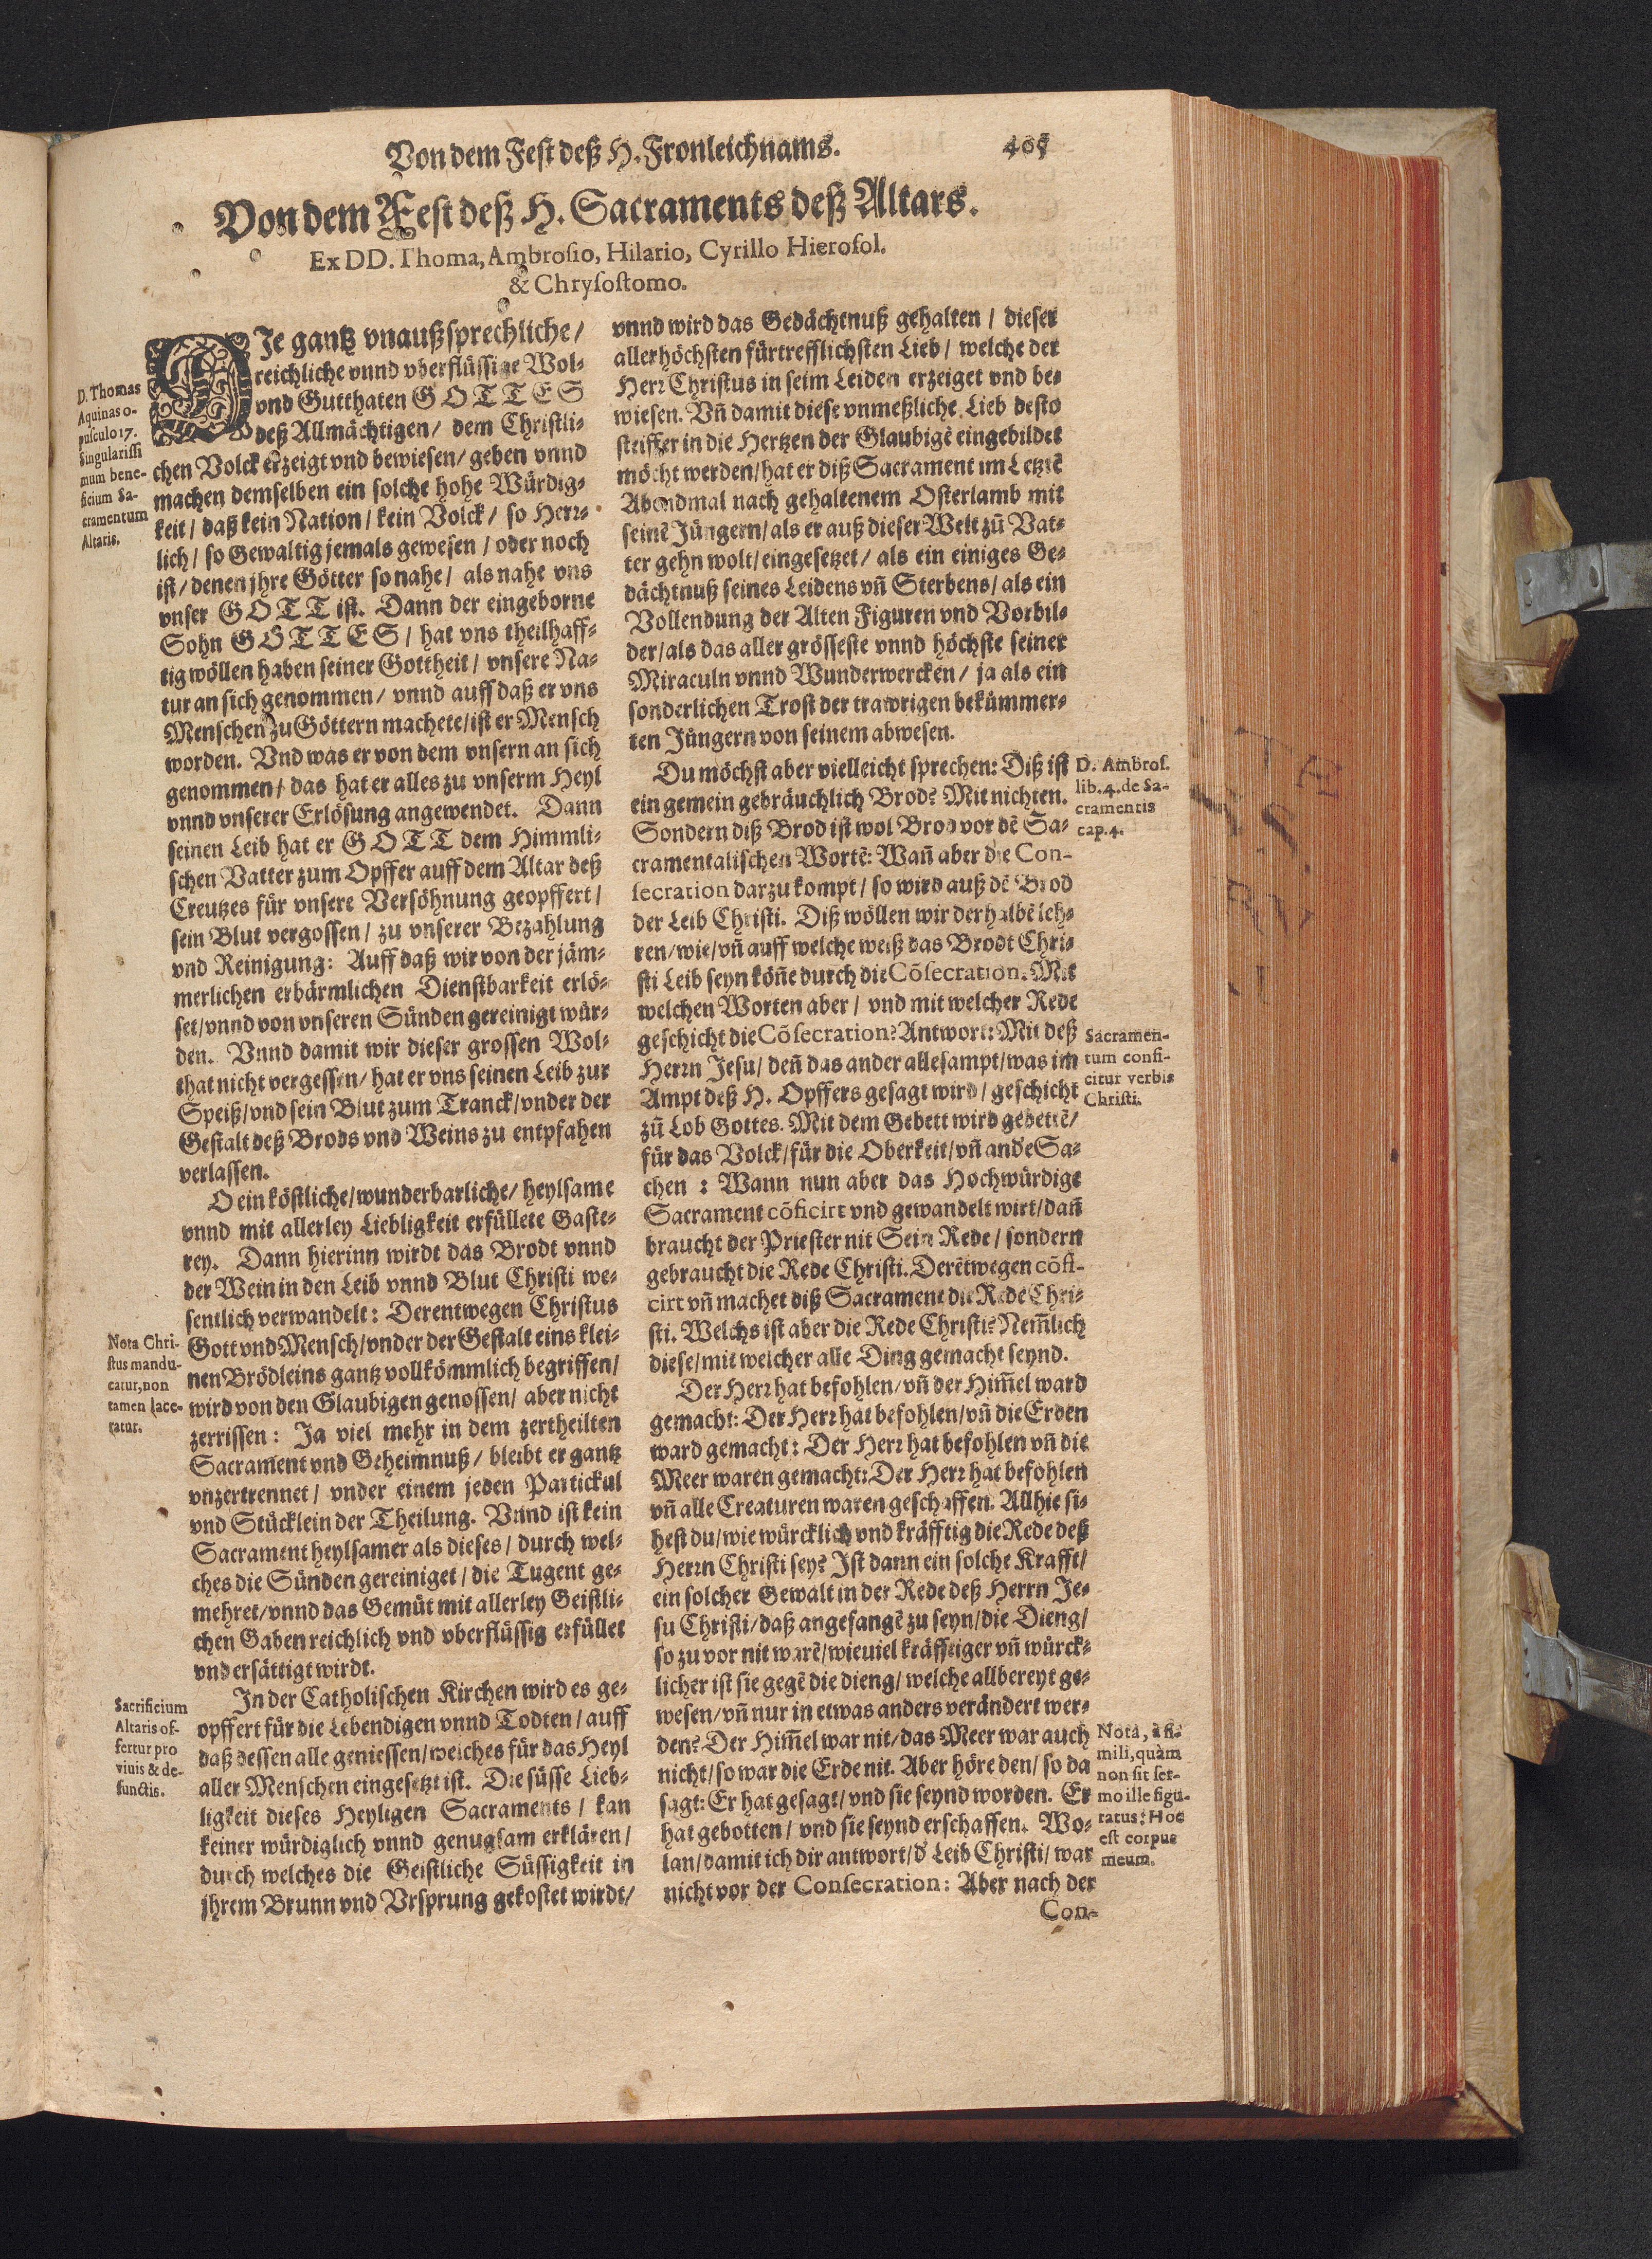 Von dem Fest deß H. Fronleichnams. 405
Von dem Fest deß H. Sacraments deß Altars.
Ex DD. Thoma, Ambrosio, Hilario, Cyrillo Hierosol.
& Chrysostomo.
D. Thomas
Aquinas o-
pusculo 17.
Singularissi
mum bene-
ficium Sa-
cramentum
Altaris.
DIe gantz vnaußsprechliche/
reichliche vnnd vberflüssige Wol-
vnd Gutthaten GOTTES
deß Allmächtigen/ dem Christli-
chen Volck erzeigt vnd bewiesen/ geben vnnd
machen demselben ein solche hohe Würdig-
keit/ daß kein Nation/ kein Volck/ so Herr-
lich/ so Gewaltig jemals gewesen/ oder noch
ist/ denen jhre Götter so nahe/ als nahe vns
vnser GOTT ist. Dann der eingeborne
Sohn GOTTES/ hat vns theilhaff-
tig wöllen haben seiner Gottheit/ vnsere Na-
tur an sich genommen/ vnnd auff daß er vns
Menschen zu Göttern machete/ ist er Mensch
worden. Vnd was er von dem vnsern an sich
genommen/ das hat er alles zu vnserm Heyl
vnnd vnserer Erlösung angewendet. Dann
seinen Leib hat er GOTT dem Himmli-
schen Vatter zum Opffer auff dem Altar deß
Creutzes für vnsere Versöhnung geopffert/
sein Blut vergossen/ zu vnserer Bezahlung
vnd Reinigung: Auff daß wir von der jäm-
merlichen erbärmlichen Dienstbarkeit erlö-
set/ vnnd von vnseren Sünden gereinigt wür-
den. Vnnd damit wir dieser grossen Wol-
that nicht vergessen/ hat er vns seinen Leib zur
Speiß/ vnd sein Blut zum Tranck/ vnder der
Gestalt deß Brods vnd Weins zu entpfahen
verlassen.
O ein köstliche/ wunderbarliche/ heylsame
vnnd mit allerley Liebligkeit erfüllete Gaste-
rey. Dann hierinn wirdt das Brodt vnnd
der Wein in den Leib vnnd Blut Christi we-
sentlich verwandelt: Derentwegen Christus
Nota Chri-
stus mandu-
catur, non
tamen lace-
ratur.
Gott vnd Mensch/ vnder der Gestalt eins klei-
nen Brödleins gantz vollkömmlich begriffen/
wird von den Glaubigen genossen/ aber nicht
zerrissen: Ja viel mehr in dem zertheilten
Sacrament vnd Geheimnuß/ bleibt er gantz
vnzertrennet/ vnder einem jeden Partickul
vnd Stücklein der Theilung. Vnnd ist kein
Sacrament heylsamer als dieses/ durch wel-
ches die Sünden gereiniget/ die Tugent ge-
mehret/ vnnd das Gemüt mit allerley Geistli-
chen Gaben reichlich vnd vberflüssig erfüllet
vnd ersättigt wirdt.
Sacrificium
Altaris of-
fertur pro
viuis & de-
functis.
In der Catholischen Kirchen wird es ge-
opffert für die Lebendigen vnnd Todten/ auff
daß dessen alle geniessen/ welches für das Heyl
aller Menschen eingesetzt ist. Die süsse Lieb-
ligkeit dieses Heyligen Sacraments/ kan
keiner würdiglich vnnd genugsam erklären/
durch welches die Geistliche Süssigkeit in
jhrem Brunn vnd Vrsprung gekostet wirdt/
vnnd wird das Gedächtnuß gehalten/ dieser
allerhöchsten fürtrefflichsten Lieb/ welche der
Herr Christus in seim Leiden erzeiget vnd be-
wiesen. Vñ damit diese vnmeßliche Lieb desto
steiffer in die Hertzen der Glaubigē eingebildet
möcht werden/ hat er diß Sacrament im Letztē
Abendmal nach gehaltenem Osterlamb mit
seinē Jüngern/ als er auß dieser Welt zū Vat-
ter gehn wolt/ eingesetzet/ als ein einiges Ge-
dächtnuß seines Leidens vñ Sterbens/ als ein
Vollendung der Alten Figuren vnd Vorbil-
der/ als das aller grösseste vnnd höchste seiner
Miraculn vnnd Wunderwercken/ ja als ein
sonderlichen Trost der trawrigen bekümmer-
ten Jüngern von seinem abwesen.
Du möchst aber vielleicht sprechen: Diß ist
ein gemein gebräuchlich Brod? Mit nichten.
Sondern diß Brod ist wol Brod vor dē Sa-
cramentalischen Wortē: Wañ aber die Con-
secration darzu kompt/ so wird auß dē Brod
D. Ambros.
lib. 4. de Sa-
cramentis
cap. 4.
der Leib Christi. Diß wöllen wir derhalbē leh-
ren/ wie/ vñ auff welche weiß das Brodt Chri-
sti Leib seyn köñe durch die Cōsecration. Mit
welchen Worten aber/ vnd mit welcher Rede
geschicht die Cōsecration? Antwort: Mit deß
Herrn Jesu/ deñ das ander allesampt/ was im
Ampt deß H. Opffers gesagt wird/ geschicht
Sacramen-
tum confi-
citur verbis
Christi.
zū Lob Gottes. Mit dem Gebett wird gebettē/
für das Volck/ für die Oberkeit/ vñ ande Sa-
chen: Wann nun aber das Hochwürdige
Sacrament cōficirt vnd gewandelt wirt/ dañ
braucht der Priester nit Sein Rede/ sondern
gebraucht die Rede Christi. Derētwegen cōfi-
cirt vñ machet diß Sacrament die Rede Chri-
sti. Welchs ist aber die Rede Christi? Nem̃lich
diese/ mit welcher alle Ding gemacht seynd.
Der Herr hat befohlen/ vñ der Him̃el ward
gemacht: Der Herr hat befohlen/ vñ die Erden
ward gemacht: Der Herr hat befohlen vñ die
Meer waren gemacht: Der Herr hat befohlen
vñ alle Creaturen waren geschaffen. Allhie si-
hest du/ wie würcklich vnd kräfftig die Rede deß
Herrn Christi sey? Ist dann ein solche Krafft/
ein solcher Gewalt in der Rede deß Herrn Je-
su Christi/ daß angefangē zu seyn/ die Dieng/
so zu vor nit warē/ wieuiel kräfftiger vñ würck-
licher ist sie gegē die dieng/ welche allbereyt ge-
wesen/ vñ nur in etwas anders verändert wer-
den? Der Him̃el war nit/ das Meer war auch
nicht/ so war die Erde nit. Aber höre den/ so da
sagt: Er hat gesagt/ vnd sie seynd worden. Er
hat gebotten/ vnd sie seynd erschaffen. Wo-
lan/ damit ich dir antwort/ d' Leib Christi/ war
nicht vor der Consecration: Aber nach der
Nota, à si-
mili, quàm
non sit ser-
mo ille figu-
ratus: Hoc
est corpus
meum.
Con-